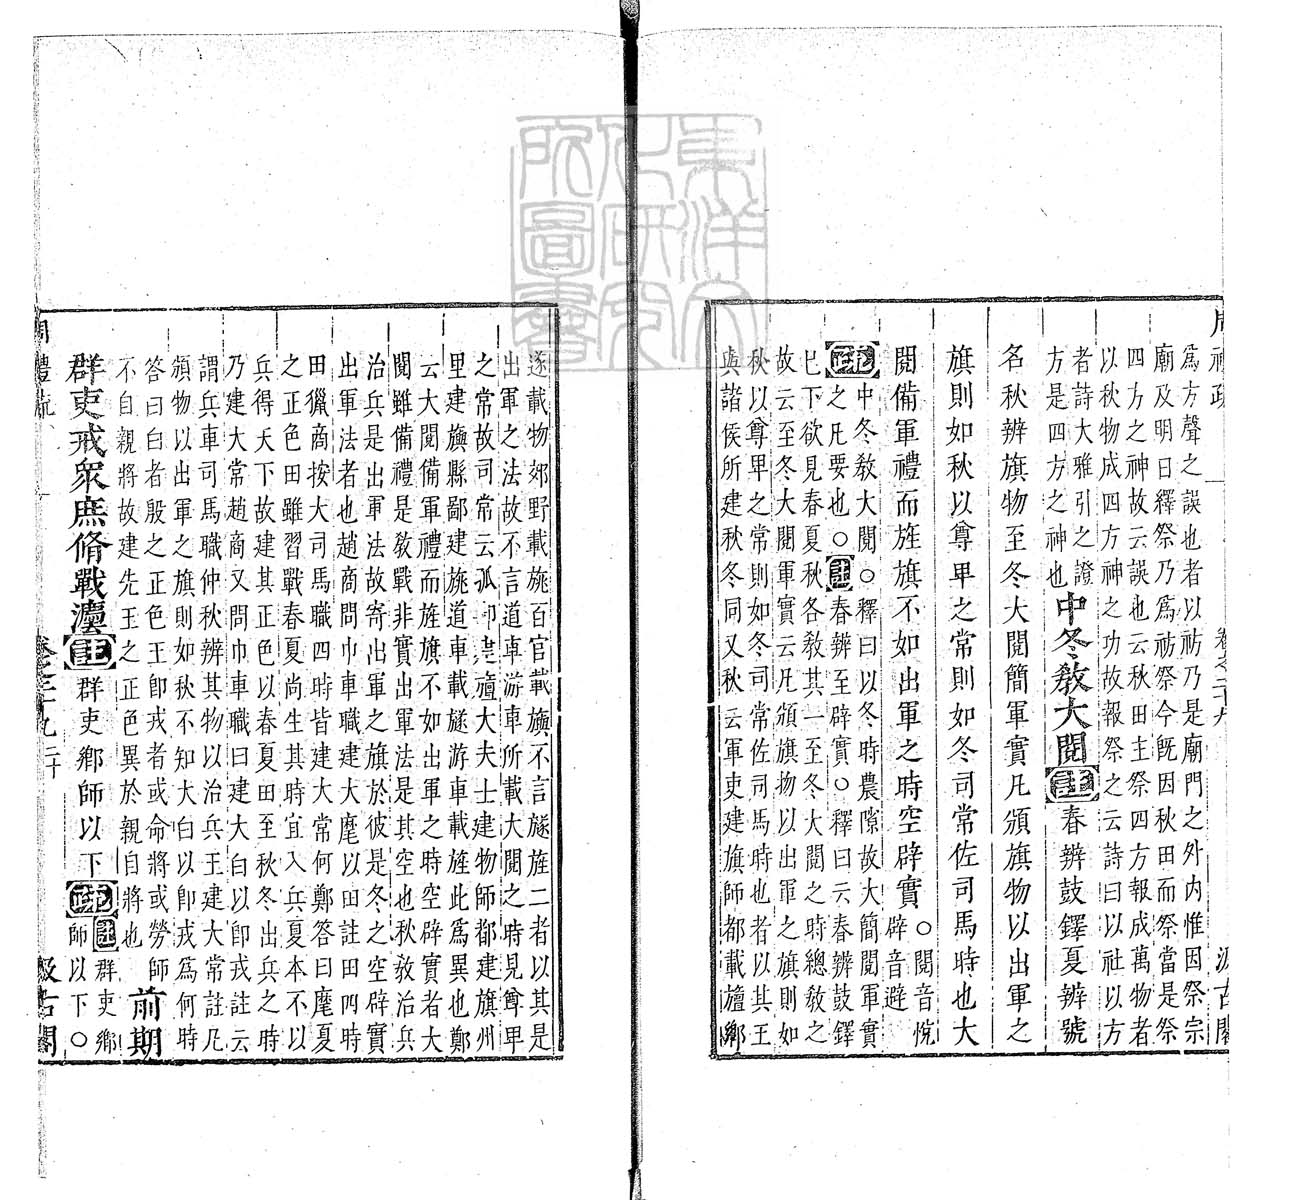 爲方聲之誤也者以祊乃是廟門之外內惟因祭宗
廟及明日繹祭乃爲祊祭今旣因秋田而祭當是祭
四方之神故云誤也云秋田主祭四方報成萬物者
以秋物成四方神之功故報祭之云詩曰以社以方
者詩大雅引之證
方是四方之神也
中冬敎大閱註春辨鼓鐸夏辨號
名秋辨旗物至冬大閱簡軍實凡頒旗物以出軍之
旗則如秋以尊卑之常則如冬司常佐司馬時也大
閱備軍禮而旌旗不如出軍之時空辟實
○閱音悅
辟音避
疏中冬敎大閱○釋曰以冬時農隙故大簡閱軍實
之凡要也○註春辨至辟實○釋曰云春辨鼓鐸
已下欲見春夏秋各敎其一至冬大閱之時總敎之
故云至冬大閱軍實云凡頒旗物以出軍之旗則如
秋以尊卑之常則如冬司常佐司馬時也者以其王
與諸侯所建秋冬同又秋云軍吏建旗師都載旜鄉
遂載物郊野載旐百官載旟不言旞旌二者以其是
出軍之法故不言道車游車所載大閱之時見尊卑
之常故司常云孤卿建旜大夫士建物師都建旗州
里建旟縣鄙建旐道車載旞游車載旌此爲異也鄭
云大閱備軍禮而旌旗不如出軍之時空辟實者大
閱雖備禮是敎戰非實出軍法是其空也秋敎治兵
治兵是出軍法故寄出軍之旗於彼是冬之空辟實
出軍法者也趙商問巾車職建大麾以田註田四時
田獵商按大司馬職四時皆建大常何鄭答曰麾夏
之正色田雖習戰春夏尚生其時宜入兵夏本不以
兵得天下故建其正色以春夏田至秋冬出兵之時
乃建大常趙商又問巾車職曰建大白以卽戎註云
謂兵車司馬職仲秋辨其物以治兵王建大常註凡
頒物以出軍之旗則如秋不知大白以卽戎爲何時
答曰白者殷之正色王卽戎者或命將或勞師
不自親將故建先王之正色異於親自將也
前期
群吏戒衆庶脩戰灋註群吏鄉師以下疏
註群吏鄉
師以下○
周禮疏
卷之二十九
二十
汲古閣